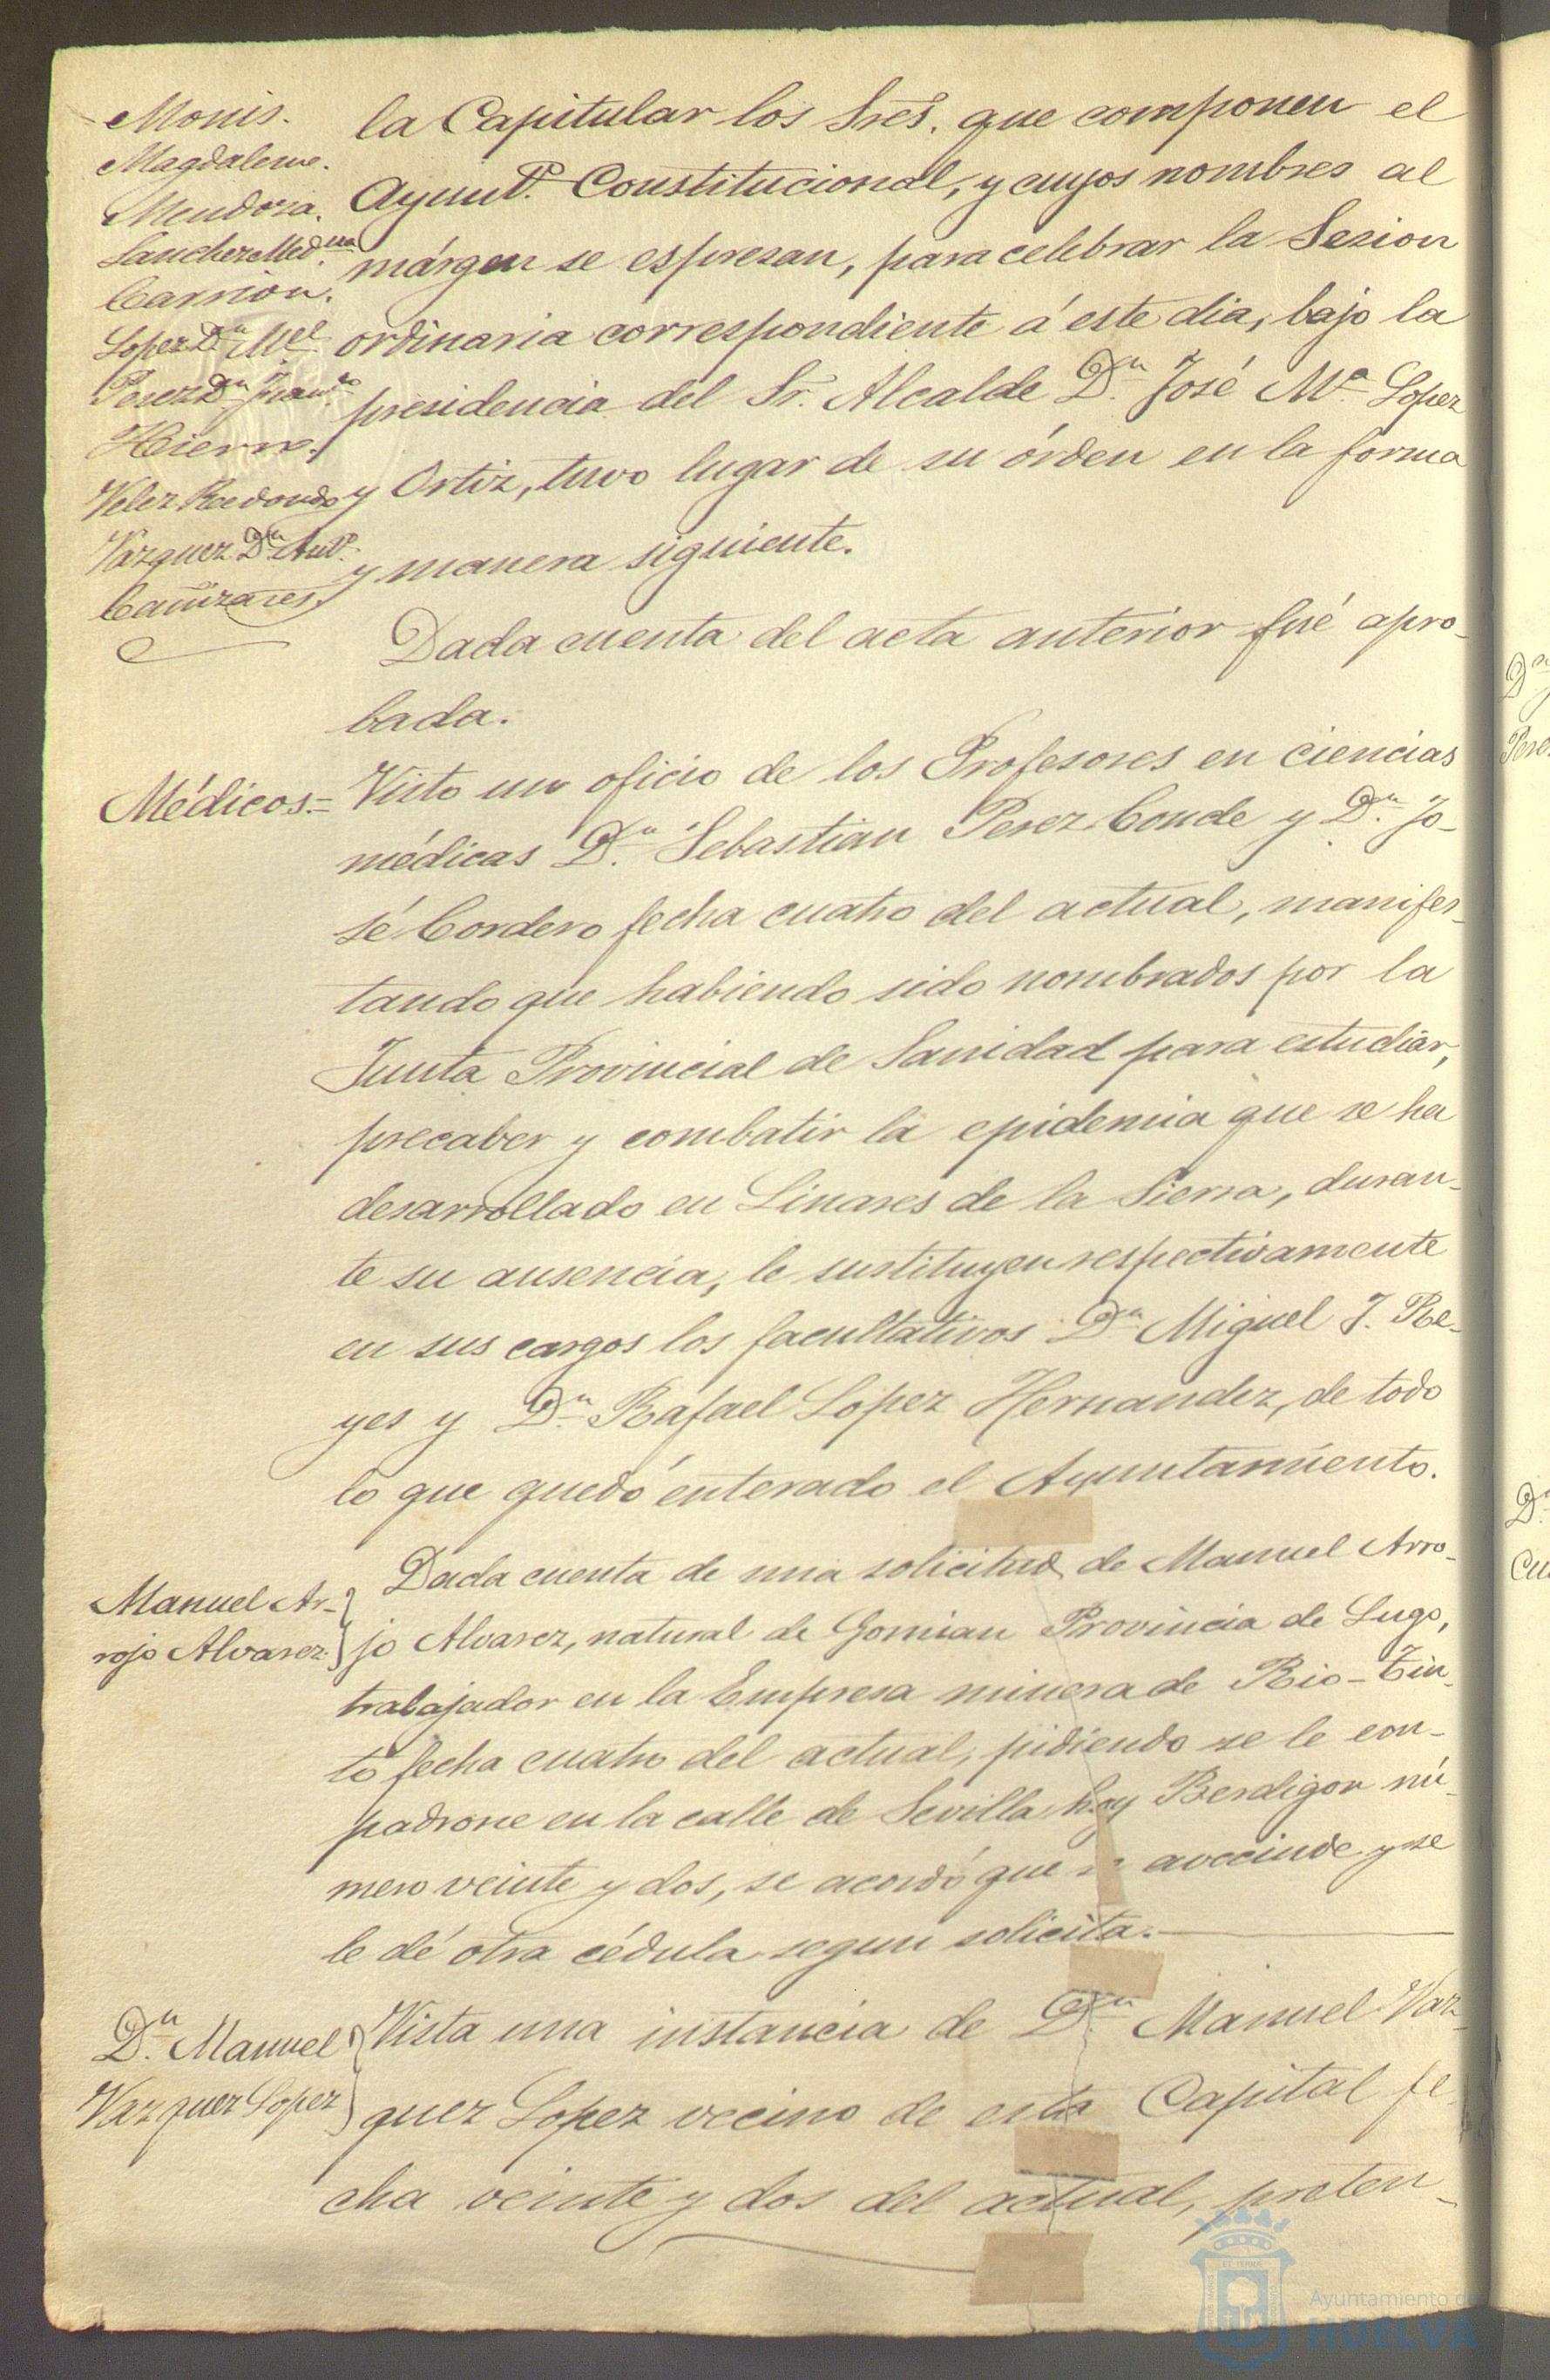 Monis.
Magdalena.
Mendoza.
Sanchez Medina
Carrion.
Lopez Dn Mel
Perez Dn Franco
Hierro.
Velez Redondo
Vazquez Dn Anto.
Cañizares.
la Capitular los Sres. que componen el
Ayunto. Constitucional, y cuyos nombres al
márgen se espresan, para celebrar la Sesion
ordinaria correspondiente á este dia, bajo la
presidencia del Sr. Alcalde Dn. José Ma Lopez
y Ortiz, tuvo lugar de su órden en la forma
y manera siguiente.
Dada cuenta del acta anterior fué apro-
bada.
Médicos=
Visto un oficio de los Profesores en ciencias
médicas Dn. Sebastian Perez Conde y Dn. Jo-
sé Cordero fecha cuatro del actual, manifes-
tando que habiendo sido nombrados por la
Junta Provincial de Sanidad para estudiar,
precaber y combatir la epidemia que se ha
desarrollado en Linares de la Sierra, duran-
te su ausencia, le sustituyen respectivamente
en sus cargos los facultativos Dn Miguel J. Re-
yes y Dn Rafael Lopez Hernandez, de todo
lo que quedó enterado el Ayuntamiento.
Manuel Ar-
rojo Alvarez
Dada cuenta de una solicitud de Manuel Arro-
jo Alvarez, natural de Gomian Provincia de Lugo,
trabajador en la Empresa minera de Rio-Tin-
to fecha cuatro del actual, pidiendo se le em-
padrone en la calle de Sevilla hoy Berdigon nú-
mero veinte y dos, se acordó que se avecinde y se
le dé otra cédula segun solicita.
Dn. Manuel
Vazquez Lopez
Vista una instancia de Dn. Manuel Vaz-
quez Lopez vecino de esta Capital fe-
cha veinte y dos del actual, preten-
Ayuntamiento de
HUELVA